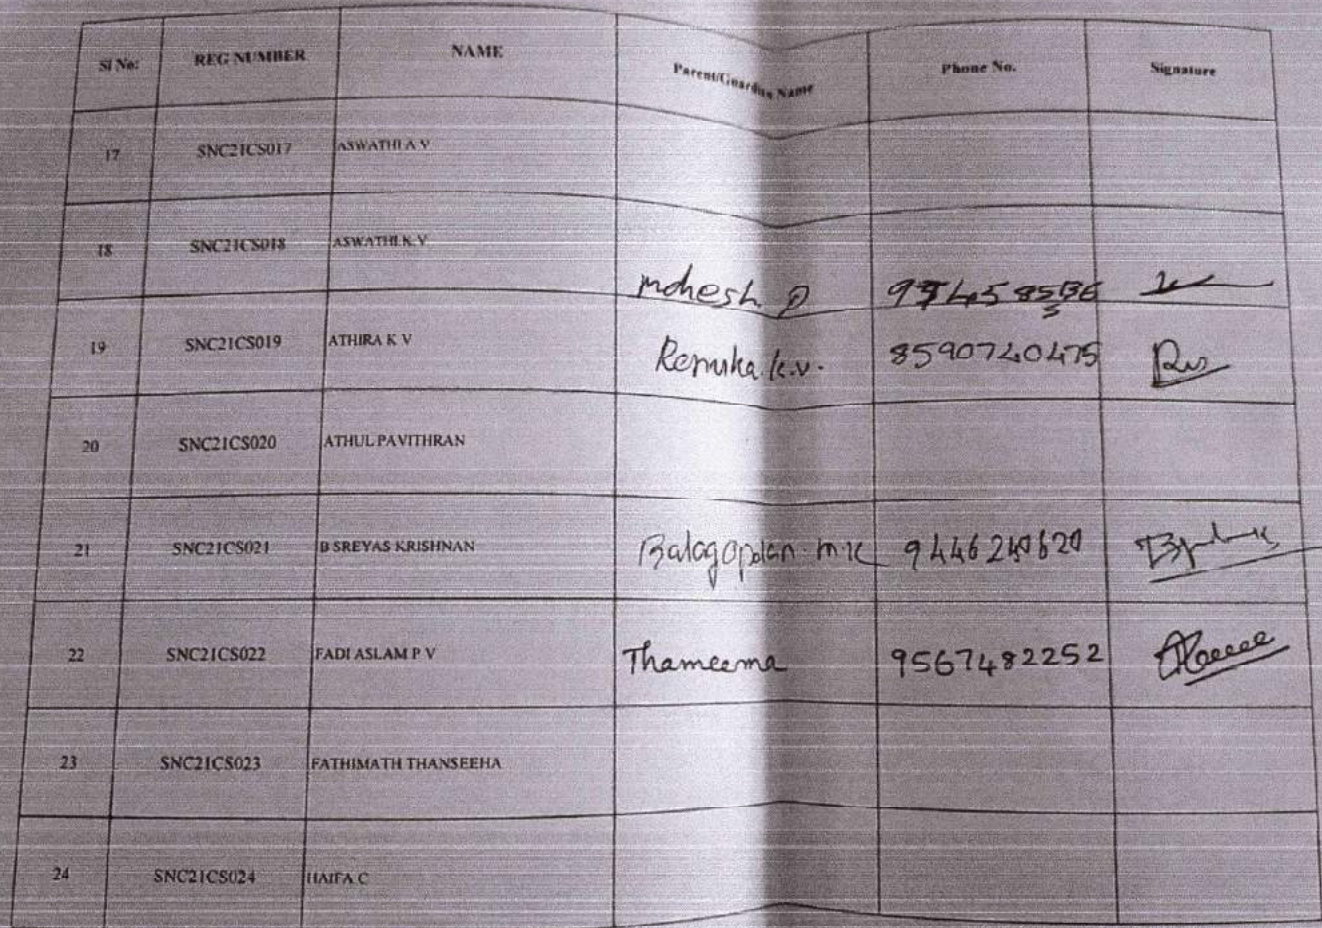 Sl No: REG NUMBER NAME Parent/Guardian Name Phone No. Signature
17 SNC21CS017 ASWATHI A V
18 SNC21CS018 ASWATHI K V mahesh P
19 SNC21CS019 ATHIRA K V Renuka k.v. 8590740475
20 SNC21CS020 ATHUL PAVITHRAN
21 SNC21CS021 B SREYAS KRISHNAN Balagopalan m.K 9446240620
22 SNC21CS022 FADI ASLAM P V Thameema 9567482252
23 SNC21CS023 FATHIMATH THANSEEHA
24 SNC21CS024 HAIFA C